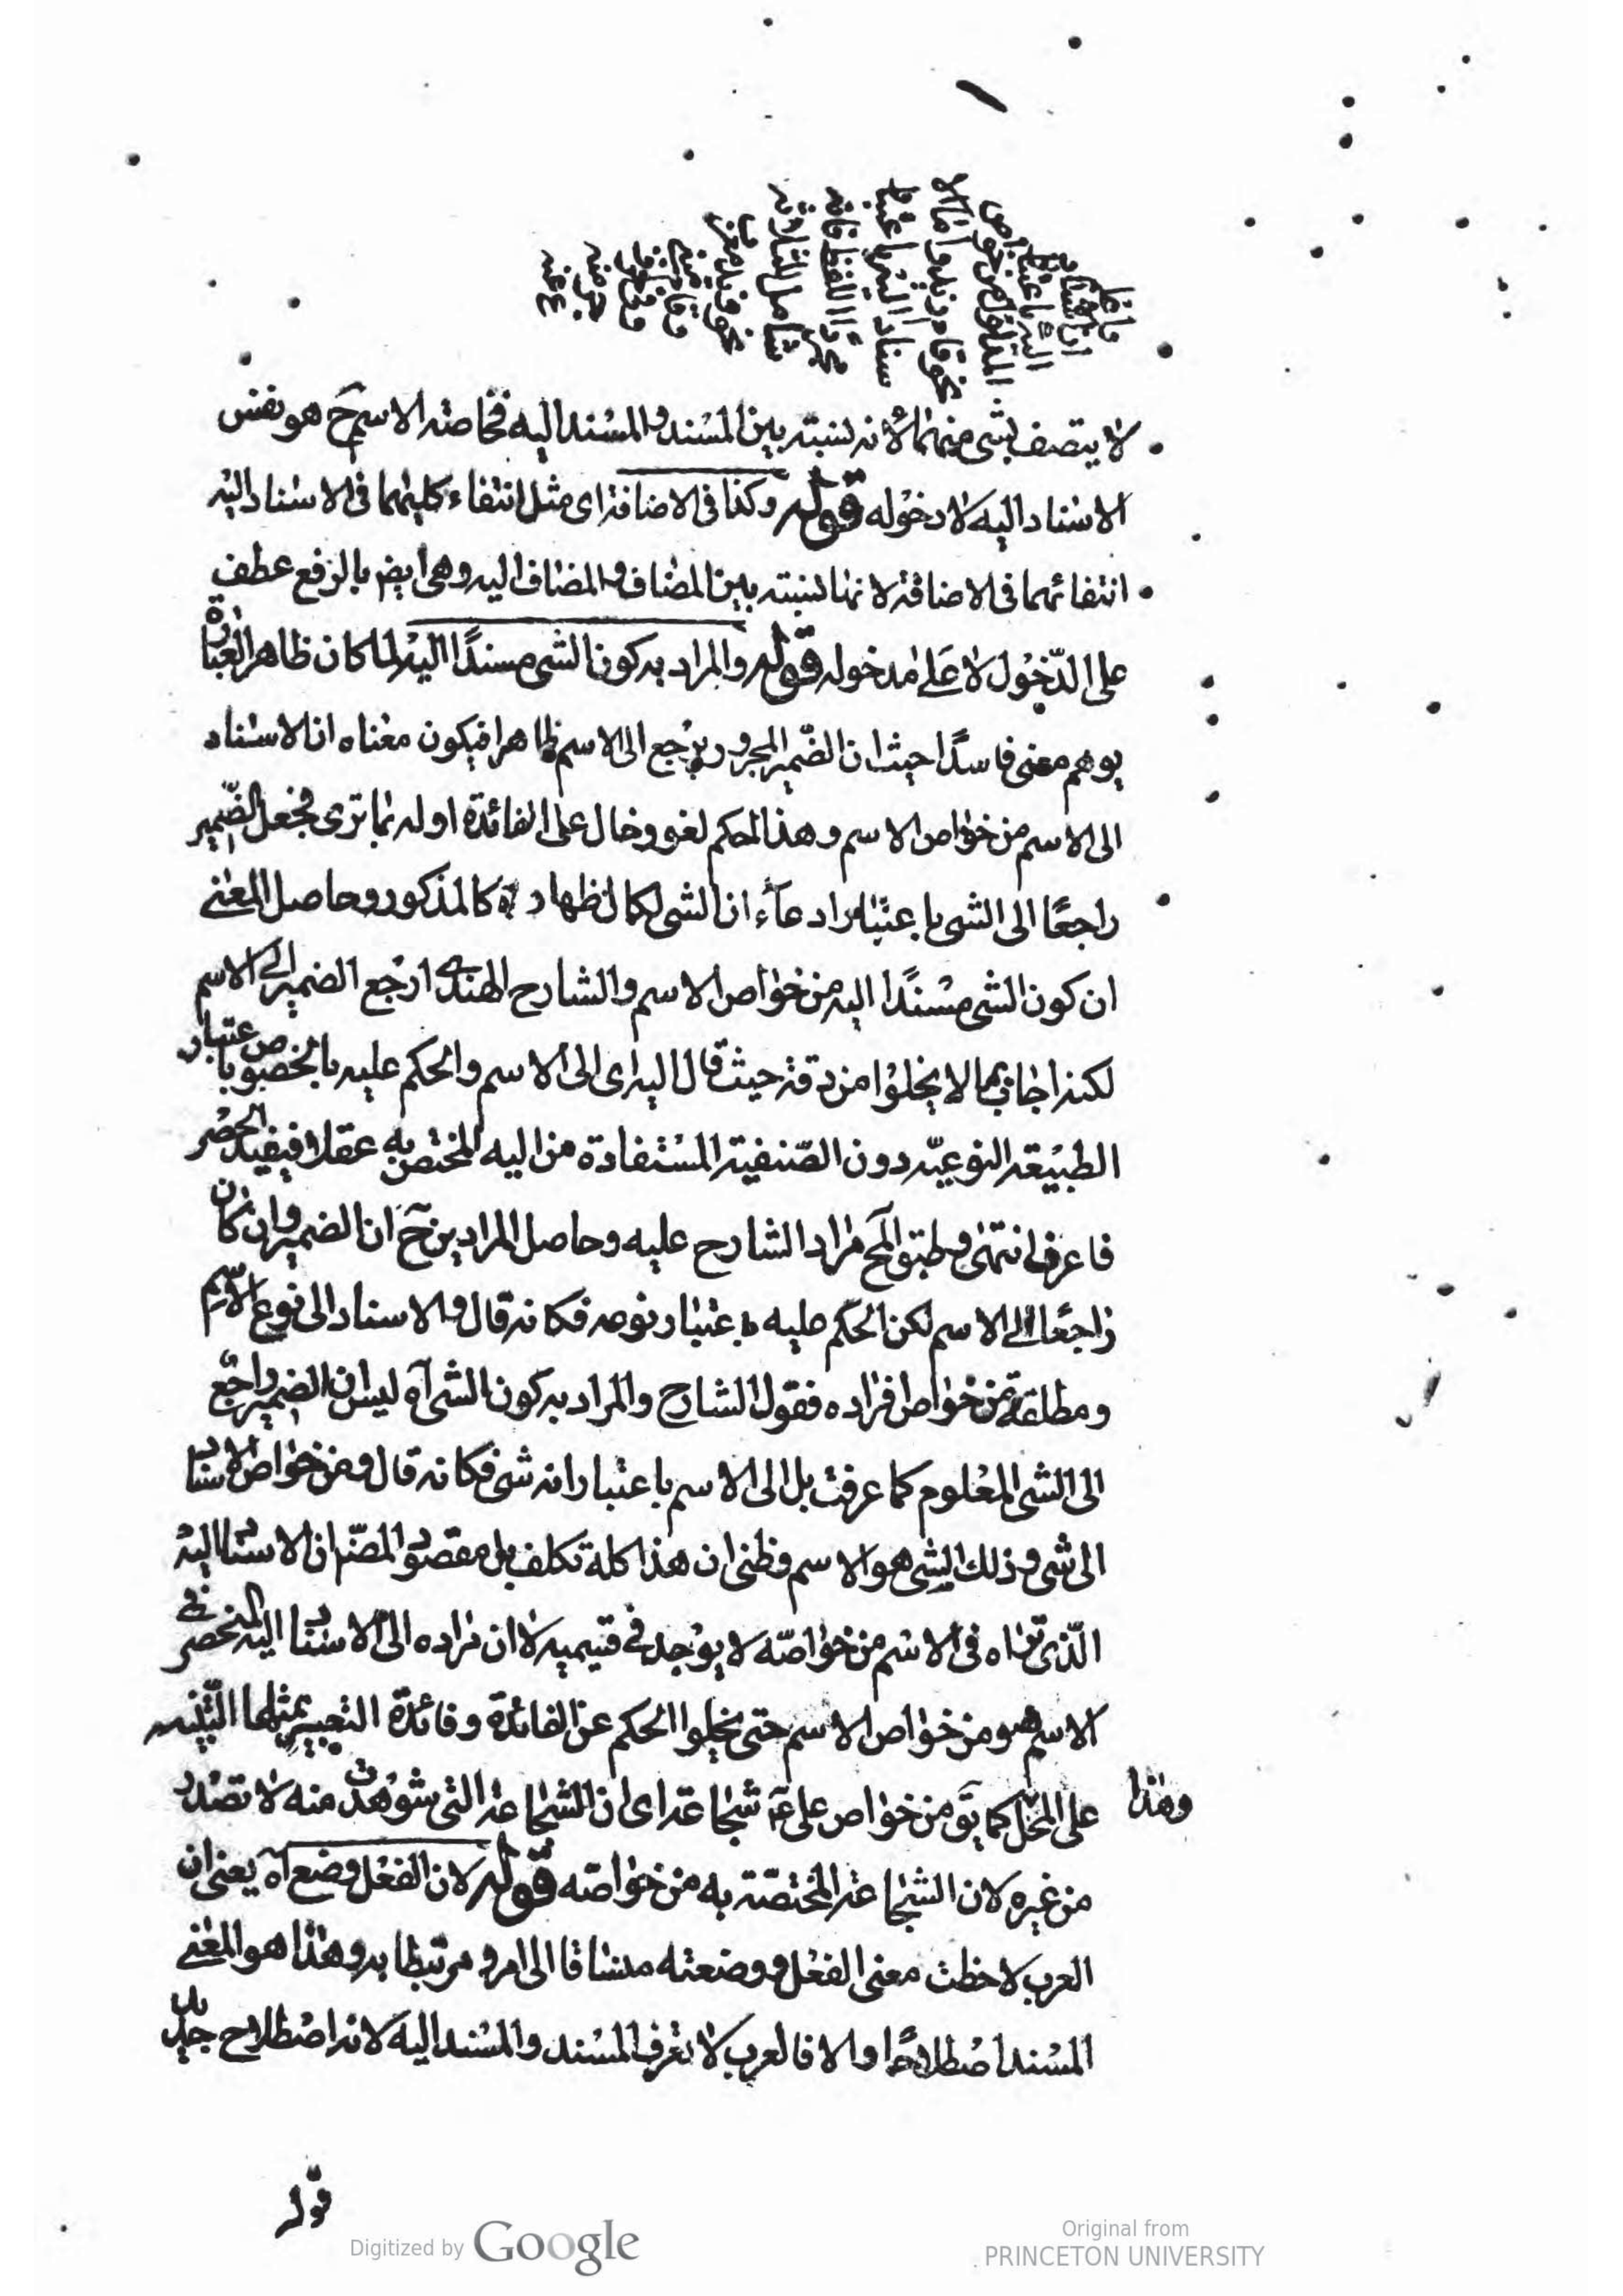 لا يتصف بشئ منهما لأنه نسبته بين المسند والمسند اليه فخاصته الاسم ح هو نفس
الاسناد اليه لا دخوله قوله وكذا في الاضافة اى مثل انتفاء كليهما في الاسناد اليه
انتفائهما في الاضافة لانها نسبته بين المضاف والمضاف اليه وهى ايض بالرفع عطف
على الدّخول لا على مدخوله قوله والمراد به كون الشى مسندًا اليه لما كان ظاهر العبارة
يوهم معنى فاسدًا حيث ان الضّمير المجرور يرجع الى الاسم ظاهرا فيكون معناه ان الاسناد
الى الاسم من خواص الاسم وهذا الحكم لغو وخال على الفائدة اوله بما ترى فجعل الضّمير
راجعًا الى الشى باعتبار ادعاء ان الشى لكمال ظهاره كالمذكور وحاصل المعنى
ان كون الشى مسندًا اليه من خواص الاسم والشارح الهندى ارجع الضمير الى الاسم
لكنه اجاب بما لا يخلوا من دقة حيث قال اليه اى الى الاسم والحكم عليه بالخصوص باعتبار
الطبيعة النوعيّة دون الصّنفية المستفادة من اليه المختص به عقلا فيفيد الحصر
فاعرف انتهى وطبق المح مراد الشارح عليه وحاصل المرادين ح ان الضمير وان كان
راجعًا الى الاسم لكن الحكم عليه باعتبار نوعه فكانه قال والاسناد الى نوع الاسم
ومطلقه من خواص افراده فقول الشارح والمراد به كون الشى آه ليس ان الضمير راجع
الى الشى المعلوم كما عرفت بل الى الاسم باعتبار انه شى فكانه قال ومن خواص الاسناد
الى شى وذلك الشى هو الاسم وظنى ان هذا كله تكلف بل مقصود المصّ ان الاسناد اليه
الّذى تراه في الاسم من خواصّه لا يوجد في قسيميه لا ان مراده الى الاسناد اليه المنحصر في
الاسم هو من خواص الاسم حتى يخلوا الحكم عن الفائدة وفائدة التعبير بمثلها التّنبيه
على المحل كما يق من خواص على ع شجاعته اى ان الشجاعة التى شوهدت منه لا تصدر
وهذا
من غيره لان الشجاعة المختصّة به من خواصّه قوله لان الفعل وضع آه يعنى ان
العرب لاحظت معنى الفعل ووضعته منساقا الى امر ومرتبطا به وهذا هو المعنى
المسند اصطلاحًا والا فالعرب لا تعرف المسند والمسند اليه لانه اصطلاح جديد
قوله
Digitized by Google
Original from
PRINCETON UNIVERSITY